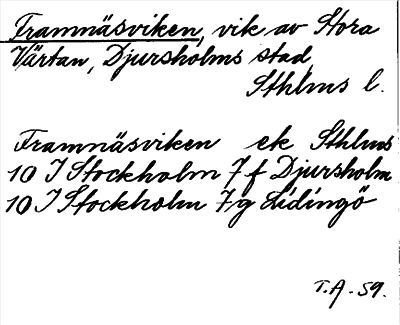 Framnäsviken, vik av Stora
Värtan, Djursholms stad,
Sthlms l.
Framnäsviken ek Sthlms
10 I Stockholm 7 f Djursholm
10 I Stockholm 7 g Lidingö
T.A. -59.